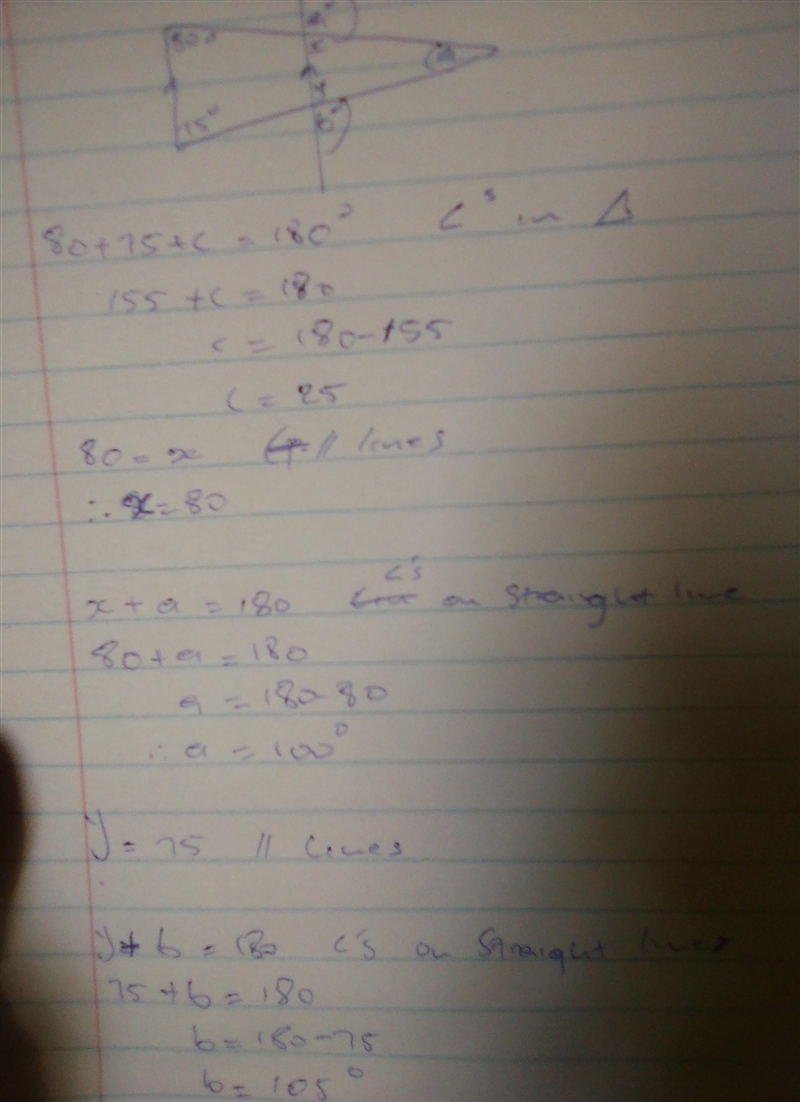 80°
x
75°
80+75+c = 180° <'s in Δ
155 + c = 180
c = 180-155
c = 25
80 = x // lines
∴ x = 80
x + a = 180 <'s on straight line
80+a = 180
a = 180-80
∴ a = 100°
y = 75 // lines
y + b = 180 <'s on straight lines
75 + b = 180
b = 180-75
b = 105°